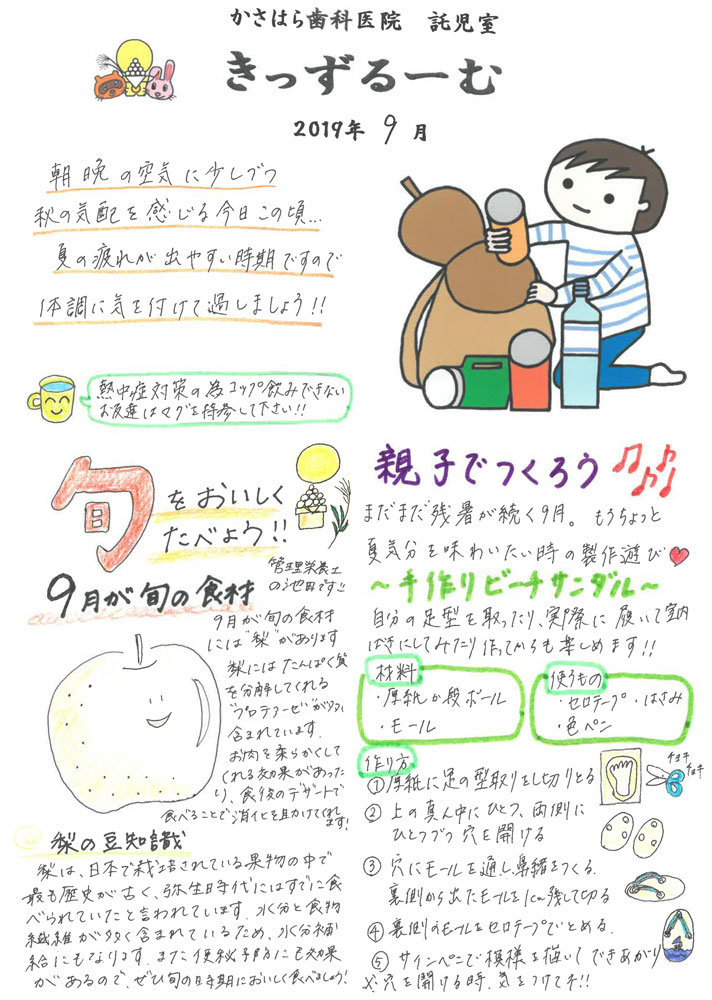 かさはら歯科医院 託児室
きっずるーむ
2019年 9月
朝晩の空気に少しづつ
秋の気配を感じる今日この頃...
夏の疲れが出やすい時期ですので
体調に気を付けて過しましょう!!
熱中症対策の為コップ飲みできない
お友達はマグを持参して下さい!!
旬をおいしく
たべよう!!
管理栄養士
の池田です!!
9月が旬の食材
9月が旬の食材
には"梨"があります
梨にはたんぱく質
を分解してくれる
"プロテアーゼ"が多く
含まれています.
お肉を柔らかくして
くれる効果があった
り、食後のデザートで
食べることで消化を助けてくれ
ます!
梨の豆知識
梨は、日本で栽培されている果物の中で
最も歴史が古く、弥生時代にはすでに食
べられていたと言われています.水分と食物
繊維が多く含まれているため、水分補
給にもなります.また便秘予防にも効果
があるので、ぜひ旬の時期においしく食べましょう!
親子でつくろう
まだまだ残暑が続く9月。もうちょっと
夏気分を味わいたい時の製作遊び
~手作りビーチサンダル~
自分の足型を取ったり、実際に履いて室内
ばきにしてみたり作ってからも楽しめます!!
材料
・厚紙か段ボール
・モール
使うもの
・セロテープ・はさみ
・色ペン
作り方
①厚紙に足の型取りをし切りとる
チョキ
チョキ
②上の真ん中にひとつ、両側に
ひとつづつ穴を開ける
③穴にモールを通し鼻緒をつくる.
裏側から出たモールを1cm残して切る
④裏側のモールをセロテープでとめる.
⑤サインペンで模様を描いてできあがり
※穴を開ける時、気をつけてネ!!